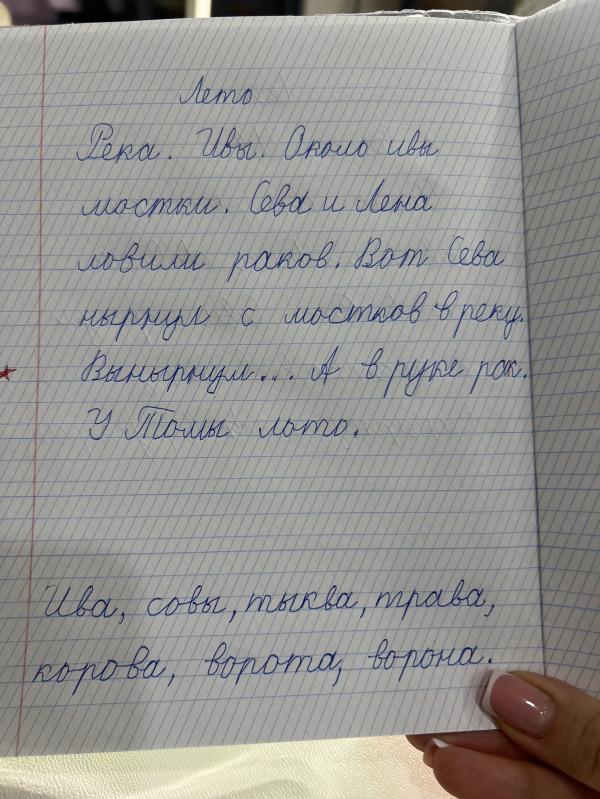 Лето
Река. Ивы. Около ивы
мостки. Сева и Лена
ловили раков. Вот Сева
нырнул с мостков в реку.
Вынырнул... А в руке рак.
У Томы лото.
Ива, совы, тыква, трава,
корова, ворота, ворона.